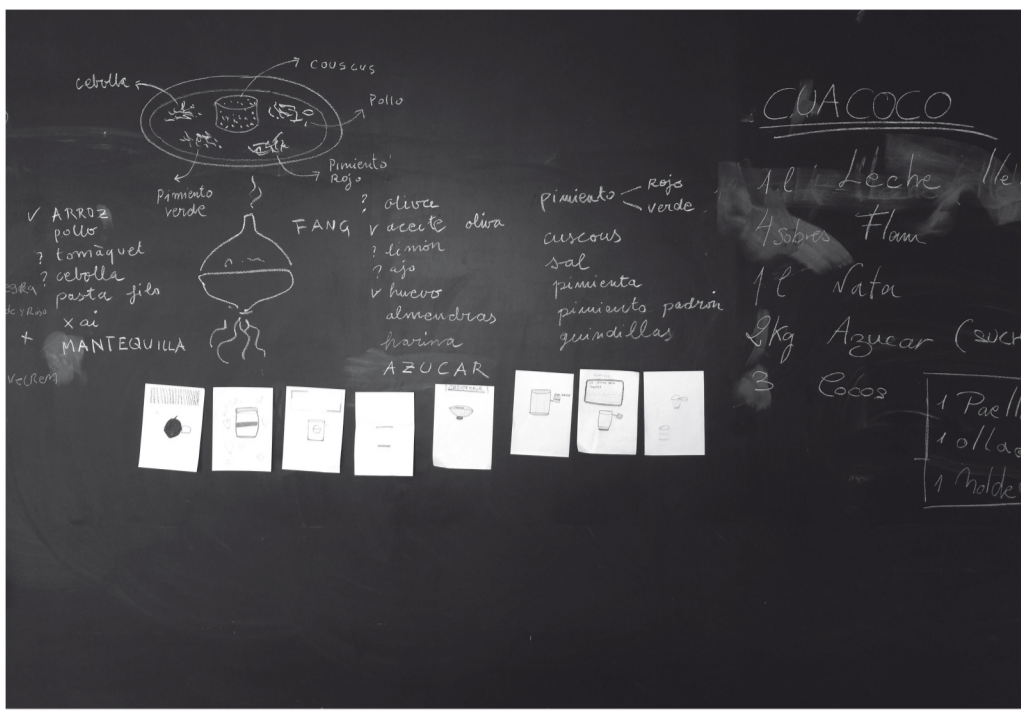 cebolla
couscus
Pollo
Pimiento
verde
Pimiento
Rojo
✓ ARROZ
pollo
? tomàquet
? cebolla
pasta filo
xai
x MANTEQUILLA
FANG
? oliva
✓ aceite oliva
? limón
? ajo
✓ huevo
almendras
harina
AZUCAR
pimiento
Rojo
verde
cuscous
sal
pimienta
pimiento padrón
guindillas
CUACOCO
1 l Leche
4 sobres Flam
1 l Nata
2 Kg Azucar
3 Cocos
1
1
1 Molde